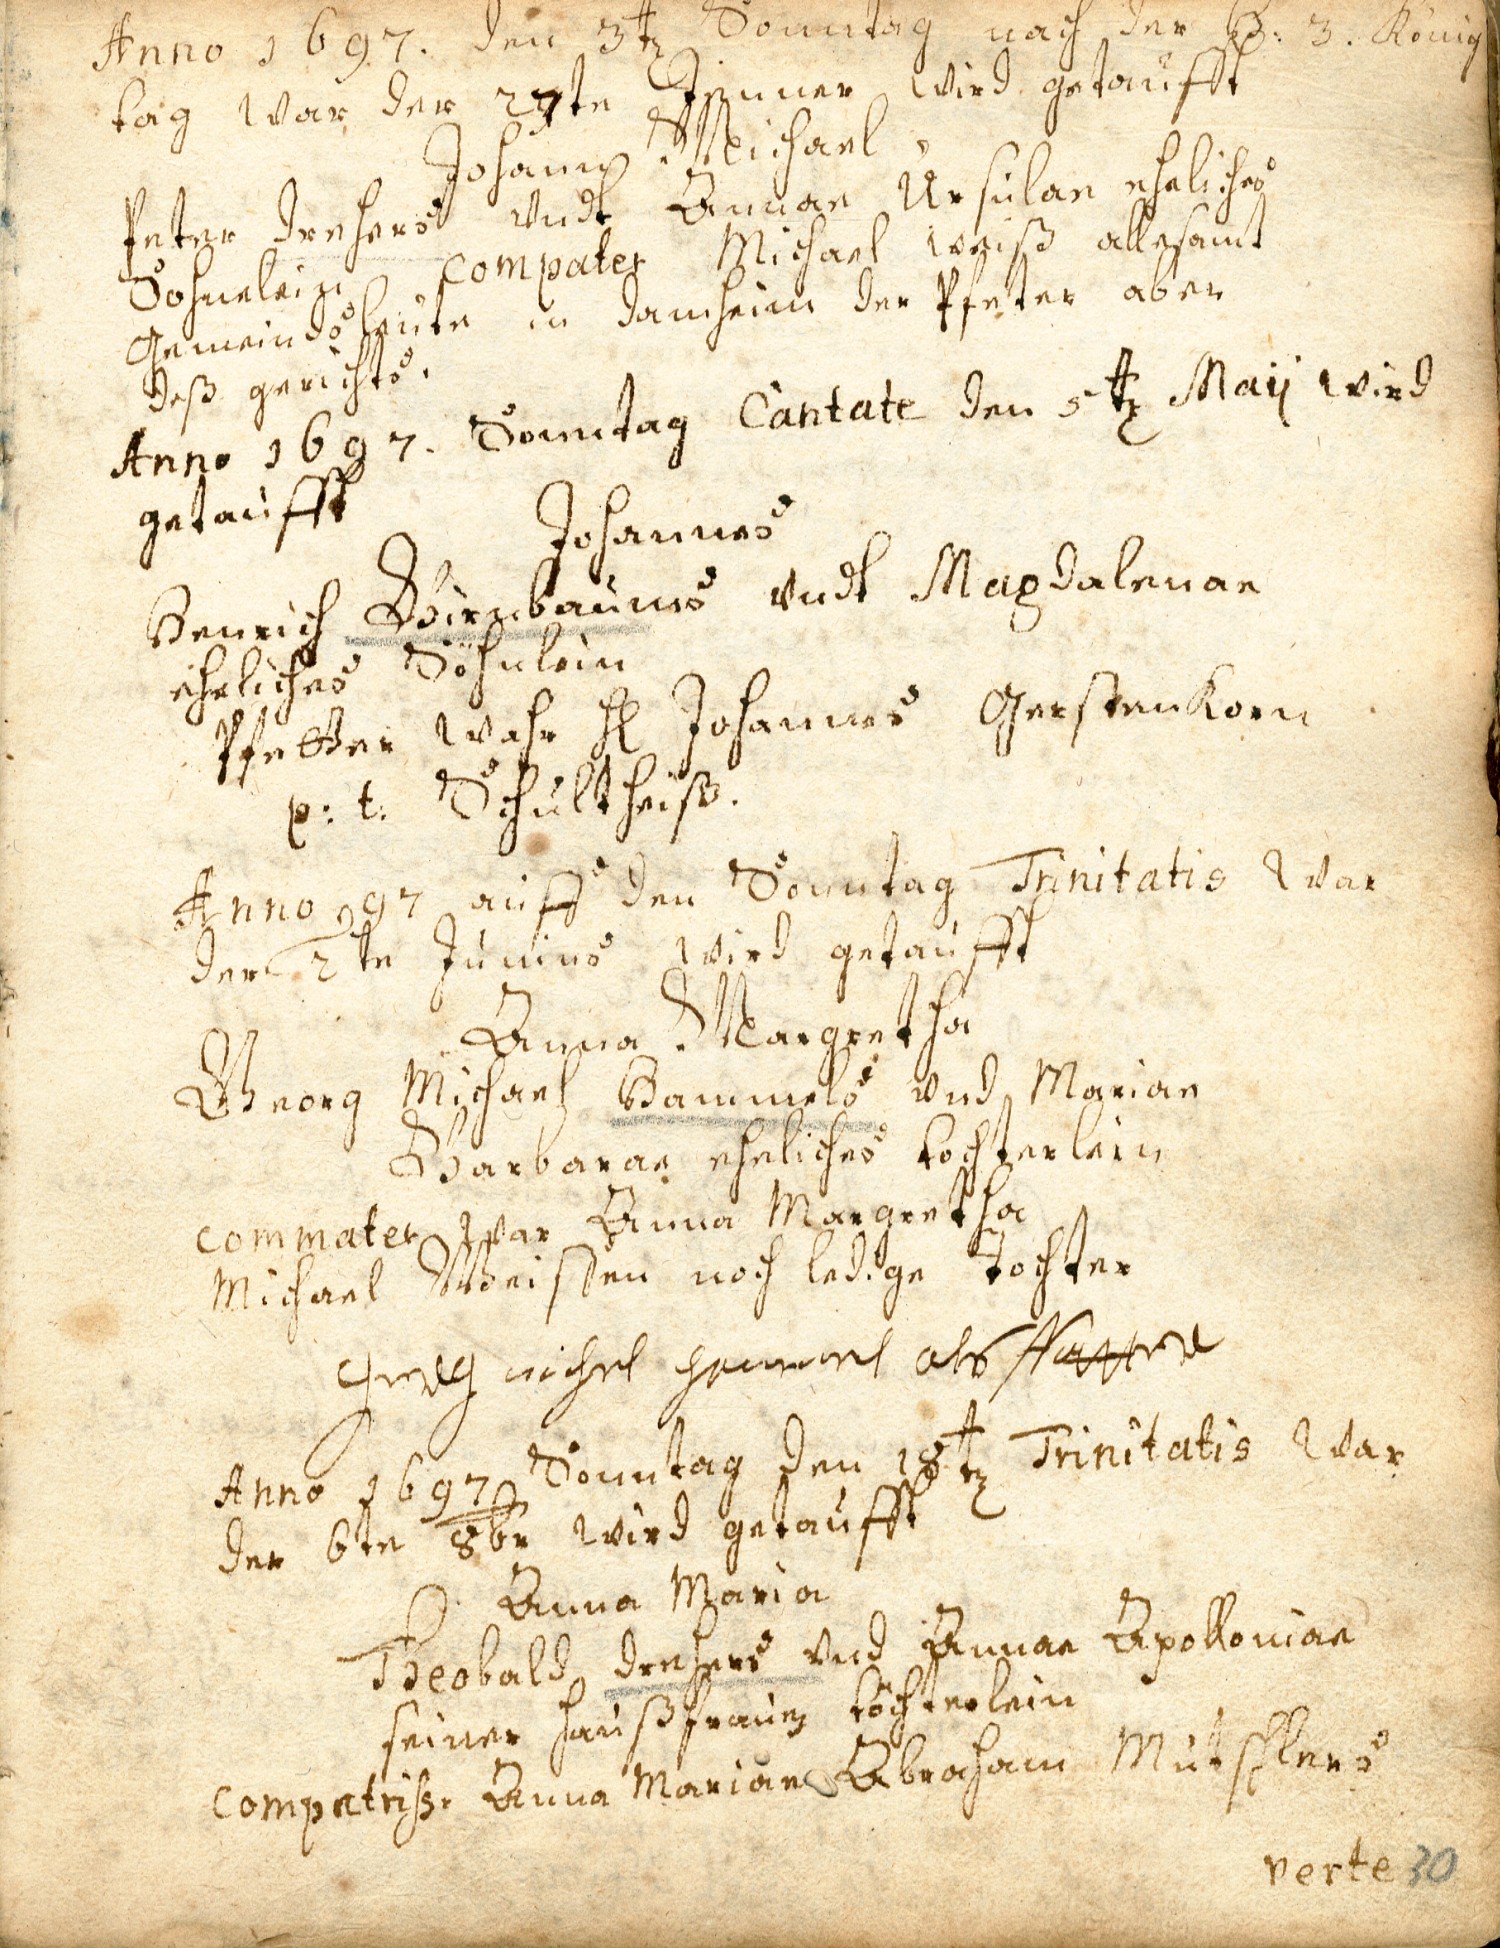 Anno 1697. den 3t Sonntag nach der H. 3. König
tag war der 27te Jenner wird getaufft
Johann Michael,
Peter Drehers undt Annae Ursulae eheliches
Sohnelein compater Michael weiß allesamt
Gemeindsleüte in Damheim der Pfeter aber
deß gerichts.
Anno 1697. Sonntag Cantate den 5t Maij wird
getaufft
Johannes
Henrich Birnbaums undt Magdalenae
eheliches Söhnlein
Pfetter wahr H Johannes Gerstenkorn
p: t: Schültheiß.
Anno 97 auff den Sonntag Trinitatis war
der 2te Junius wird getaufft
Anna Margretha
Georg Michael Hammels und Mariae
Barbarae eheliches tochterlein
commater war Anna Margretha
Michael Weissen noch ledige Tochter
michel hemmel als
Anno 1697 Sonntag den 18t Trinitatis war
der 6te 8br wird getaufft
Anna Maria
Theobald Drehers und Annae Apolloniae
seiner haußfrauen töchterlein
Compatriss. Anna Mariae Abraham Mütschlers
verte 30